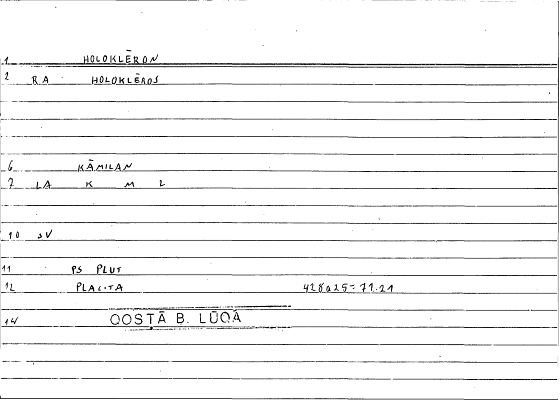 1 HOLOKLĒRON
2 RA HOLOKLĒROS
6 KĀMILAN
7 LA K M L
10 SV
11 PS PLUT
12 PLACITA 428a25=71.21
14 QOSṬĀ B. LŪQĀ